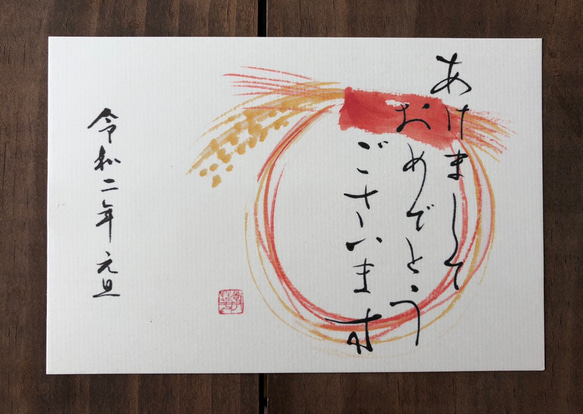 あけまして
おめでとう
ございます
令和二年 元旦